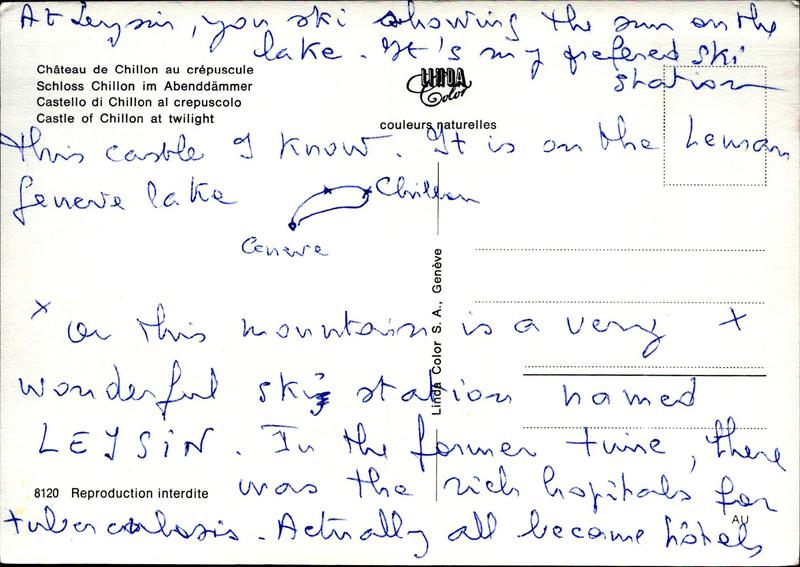 At Leysin, you ski showing the sun on the
lake. It's my prefered ski
station
Château de Chillon au crépuscule
Schloss Chillon im Abenddämmer
Castello di Chillon al crepuscolo
Castle of Chillon at twilight
LINDA
Color
couleurs naturelles
This castle I know. It is on the Leman
Geneve lake
Chillon
Geneve
Linda Color S. A., Genève
x on this mountain is a very x
wonderful ski station named
LEYSIN. In the former time, there
was the rich hopitals for
tuberculosis. Actually all became hôtels
8120 Reproduction interdite
AU